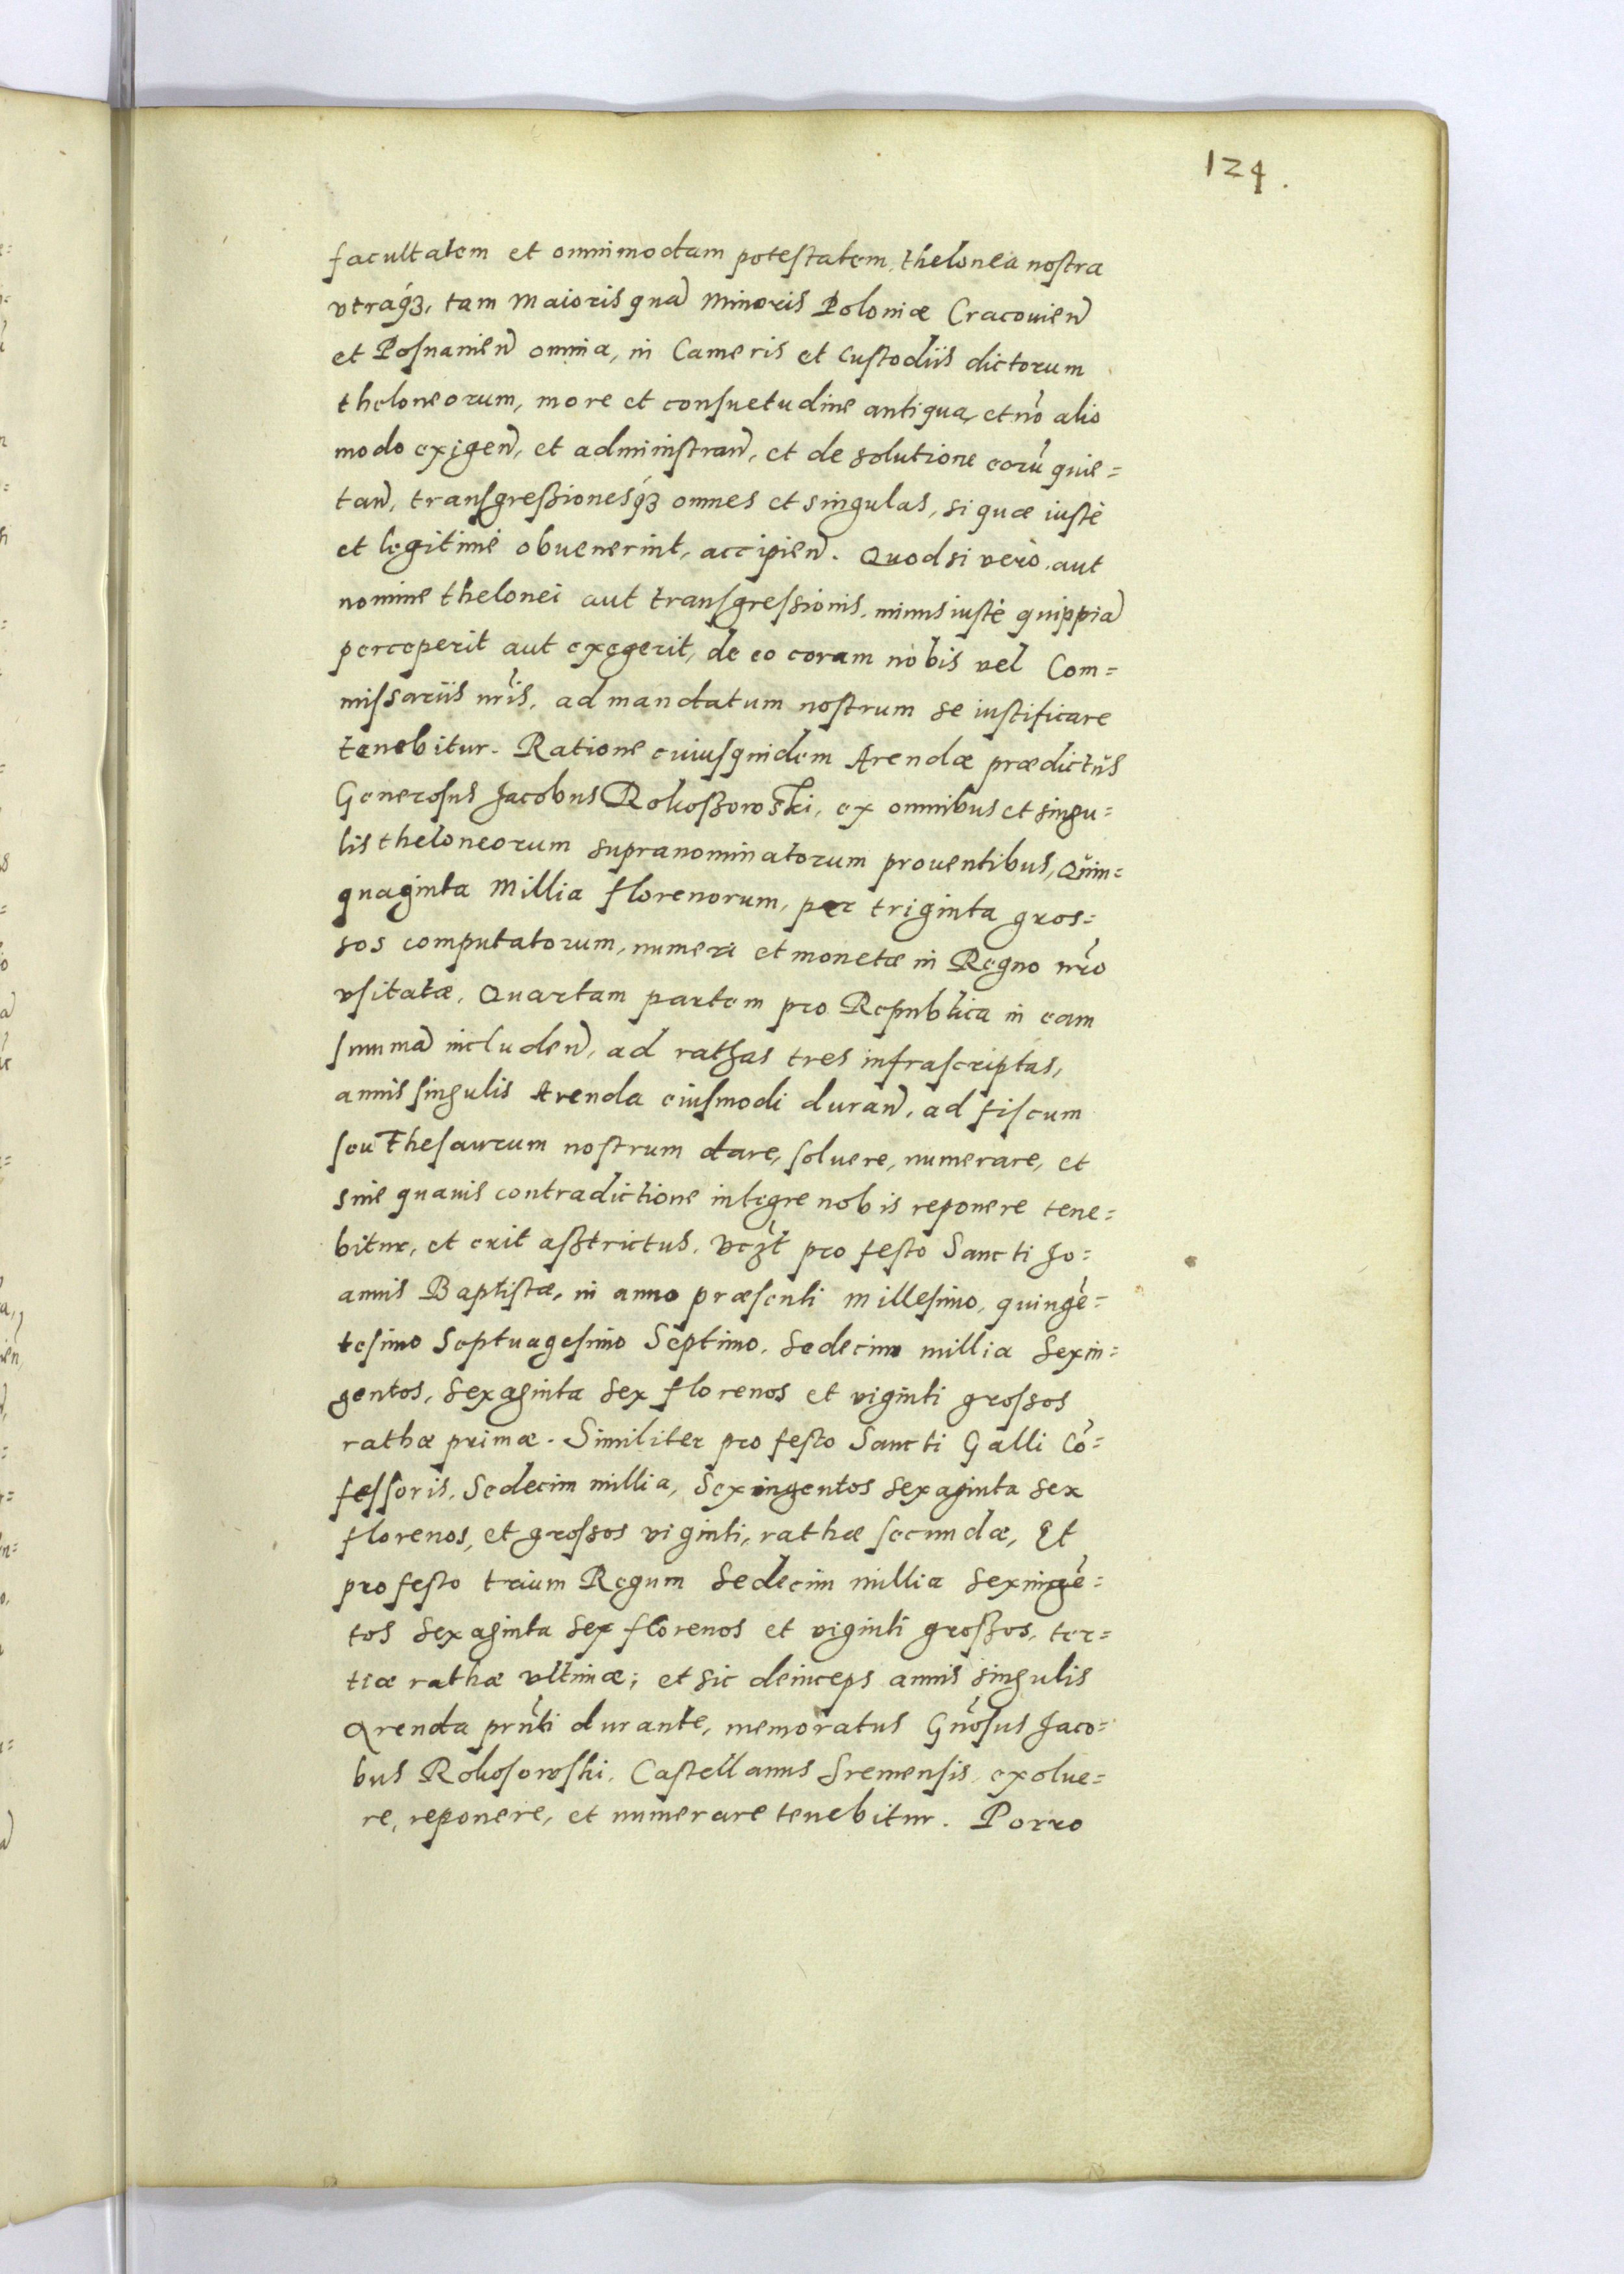 124.
facultatem et omnimodam potestatem, thelonea nostra
vtraq́ꝫ, tam Maioris quā Minoris Poloniæ Cracouien̄
et Posnanien̄ omnia, in Cameris et Custodiis dictorum
theloneorum, more et consuetudine antiqua, et nō alio
modo exigen̄, et administran̄, et de solutione eorū quie=
tan̄, transgreßionesq́ꝫ omnes et singulas, si quæ iustè
et legitimè obuenerint, accipien̄. Quod si verò aut
nomine thelonei aut transgressionis, minus iustè quippiā
perceperit aut exegerit, de eo coram nobis vel Com=
missariis nr̄is, ad mandatum nostrum se iustificare
tenebitur. Ratione cuiusquidem Arendæ prædictus
Generosus Jacobus Rokoßowski, ex omnibus et singu=
lis theloneorum supranominatorum prouentibus, Quin=
quaginta Millia florenorum, per triginta gros=
sos computatorum, numeri et monetæ in Regno nr̄o
vsitatæ, Quartam partem pro Republica in eam
summā includen̄, ad rathas tres infrascriptas,
annis singulis Arenda eiusmodi duran̄, ad fiscum
seu Thesaurum nostrum dare, soluere, numerare, et
sine quauis contradictione integre nobis reponere tene=
bitur, et erit aßtrictus. Vcꝫt pro festo Sancti Jo=
annis Baptistæ, in anno præsenti Millesimo, quingē=
tesimo Septuagesimo Septimo, Sedecim millia Sexin=
gentos, Sexaginta Sex florenos et viginti grossos
rathæ primæ. Similiter pro festo Sancti Galli Cō=
fessoris, Sedecim millia, Sexingentos Sexaginta Sex
florenos, et grossos viginti, rathæ secundæ, Et
pro festo trium Regum Sedecim millia Sexingē=
tos Sexaginta Sex florenos et viginti großos, ter=
tiæ rathæ vltimæ; et sic deinceps annis singulis
Arenda prn̄ti durante, memoratus Gn̄osus Jaco=
bus Rokosowski, Castellanus Sremensis, exolue=
re, reponere, et numerare tenebitur. Porro